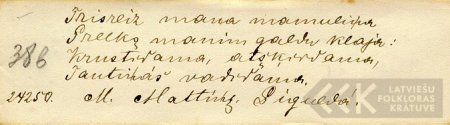 Trisreiz mana mamuliņa
Preekš manim galdu klaja:
386
Krustīdama, atškirdama,
Tautiņās vadīdama.
24250. M. Mattīņš. Siguldā.
LATVIEŠU
FOLKLORAS
KRĀTUVE